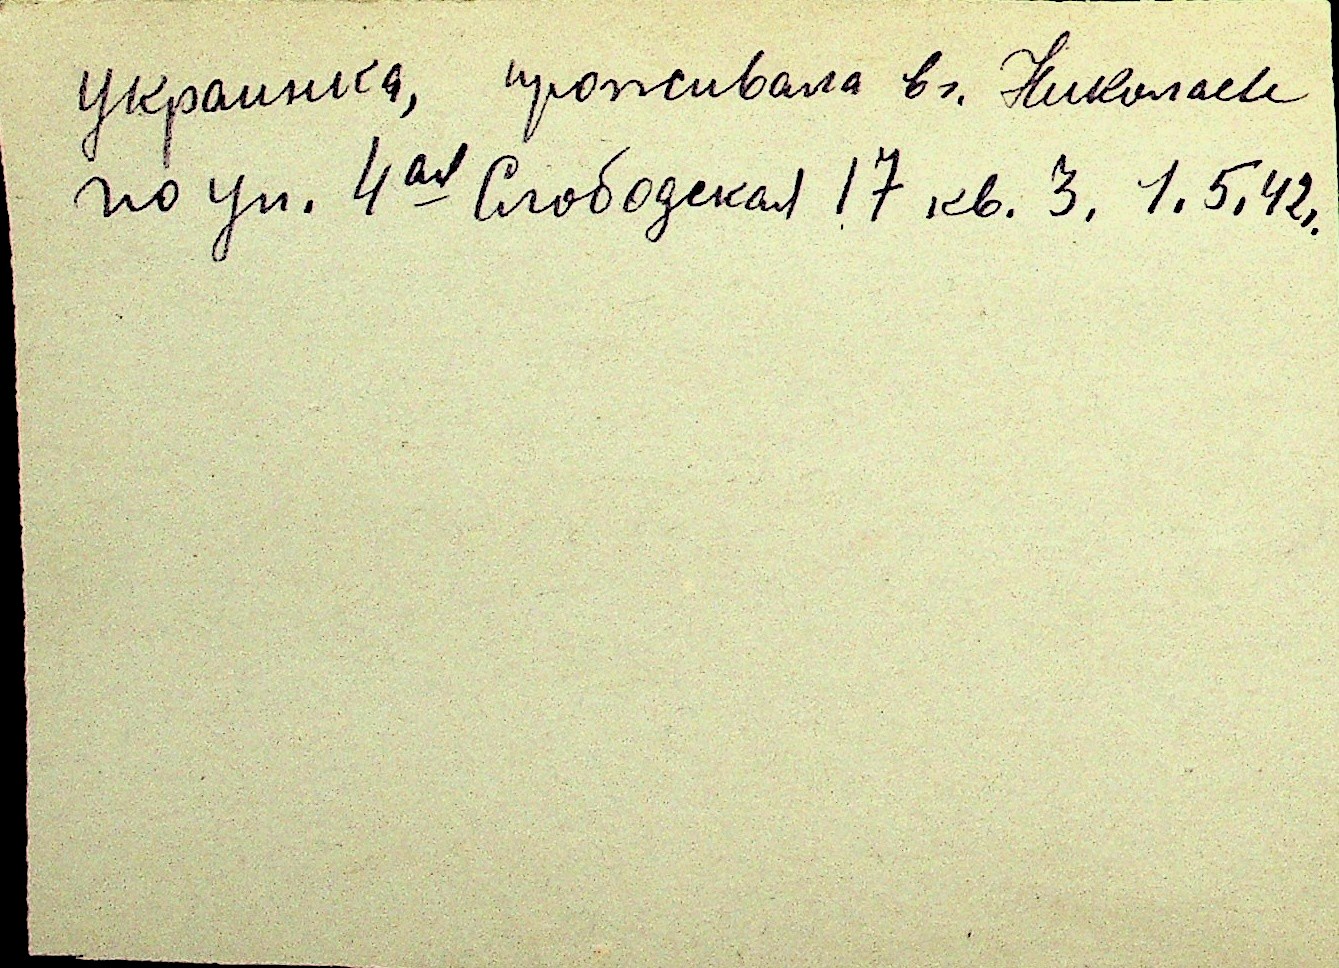 Украинка, проживала в г. Николаеве
по ул. 4ая Слободская 17 кв. 3. 1.5.42.